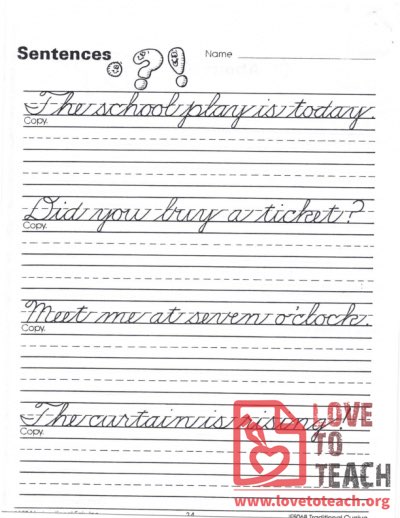 Sentences
Name
The school play is today.
Copy.
Did you buy a ticket?
Copy.
Meet me at seven o'clock.
Copy.
The curtain is rising!
Copy.
LOVE
TO
TEACH
www.lovetoteach.org
24
Traditional Cursive